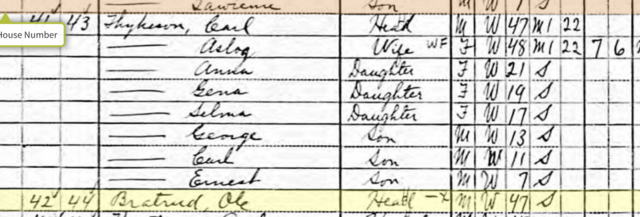 Lawrence Son M W 7 S
41 43 Thykeson, Carl Head M W 47 M1 22
House Number
Aslog Wife WF F W 48 M1 22 7 6
Anna Daughter F W 21 S
Gena Daughter F W 19 S
Selma Daughter F W 17 S
George Son M W 13 S
Carl Son M W 11 S
Ernest Son M W 7 S
42 44 Bratrud, Ole Head M W 47 S